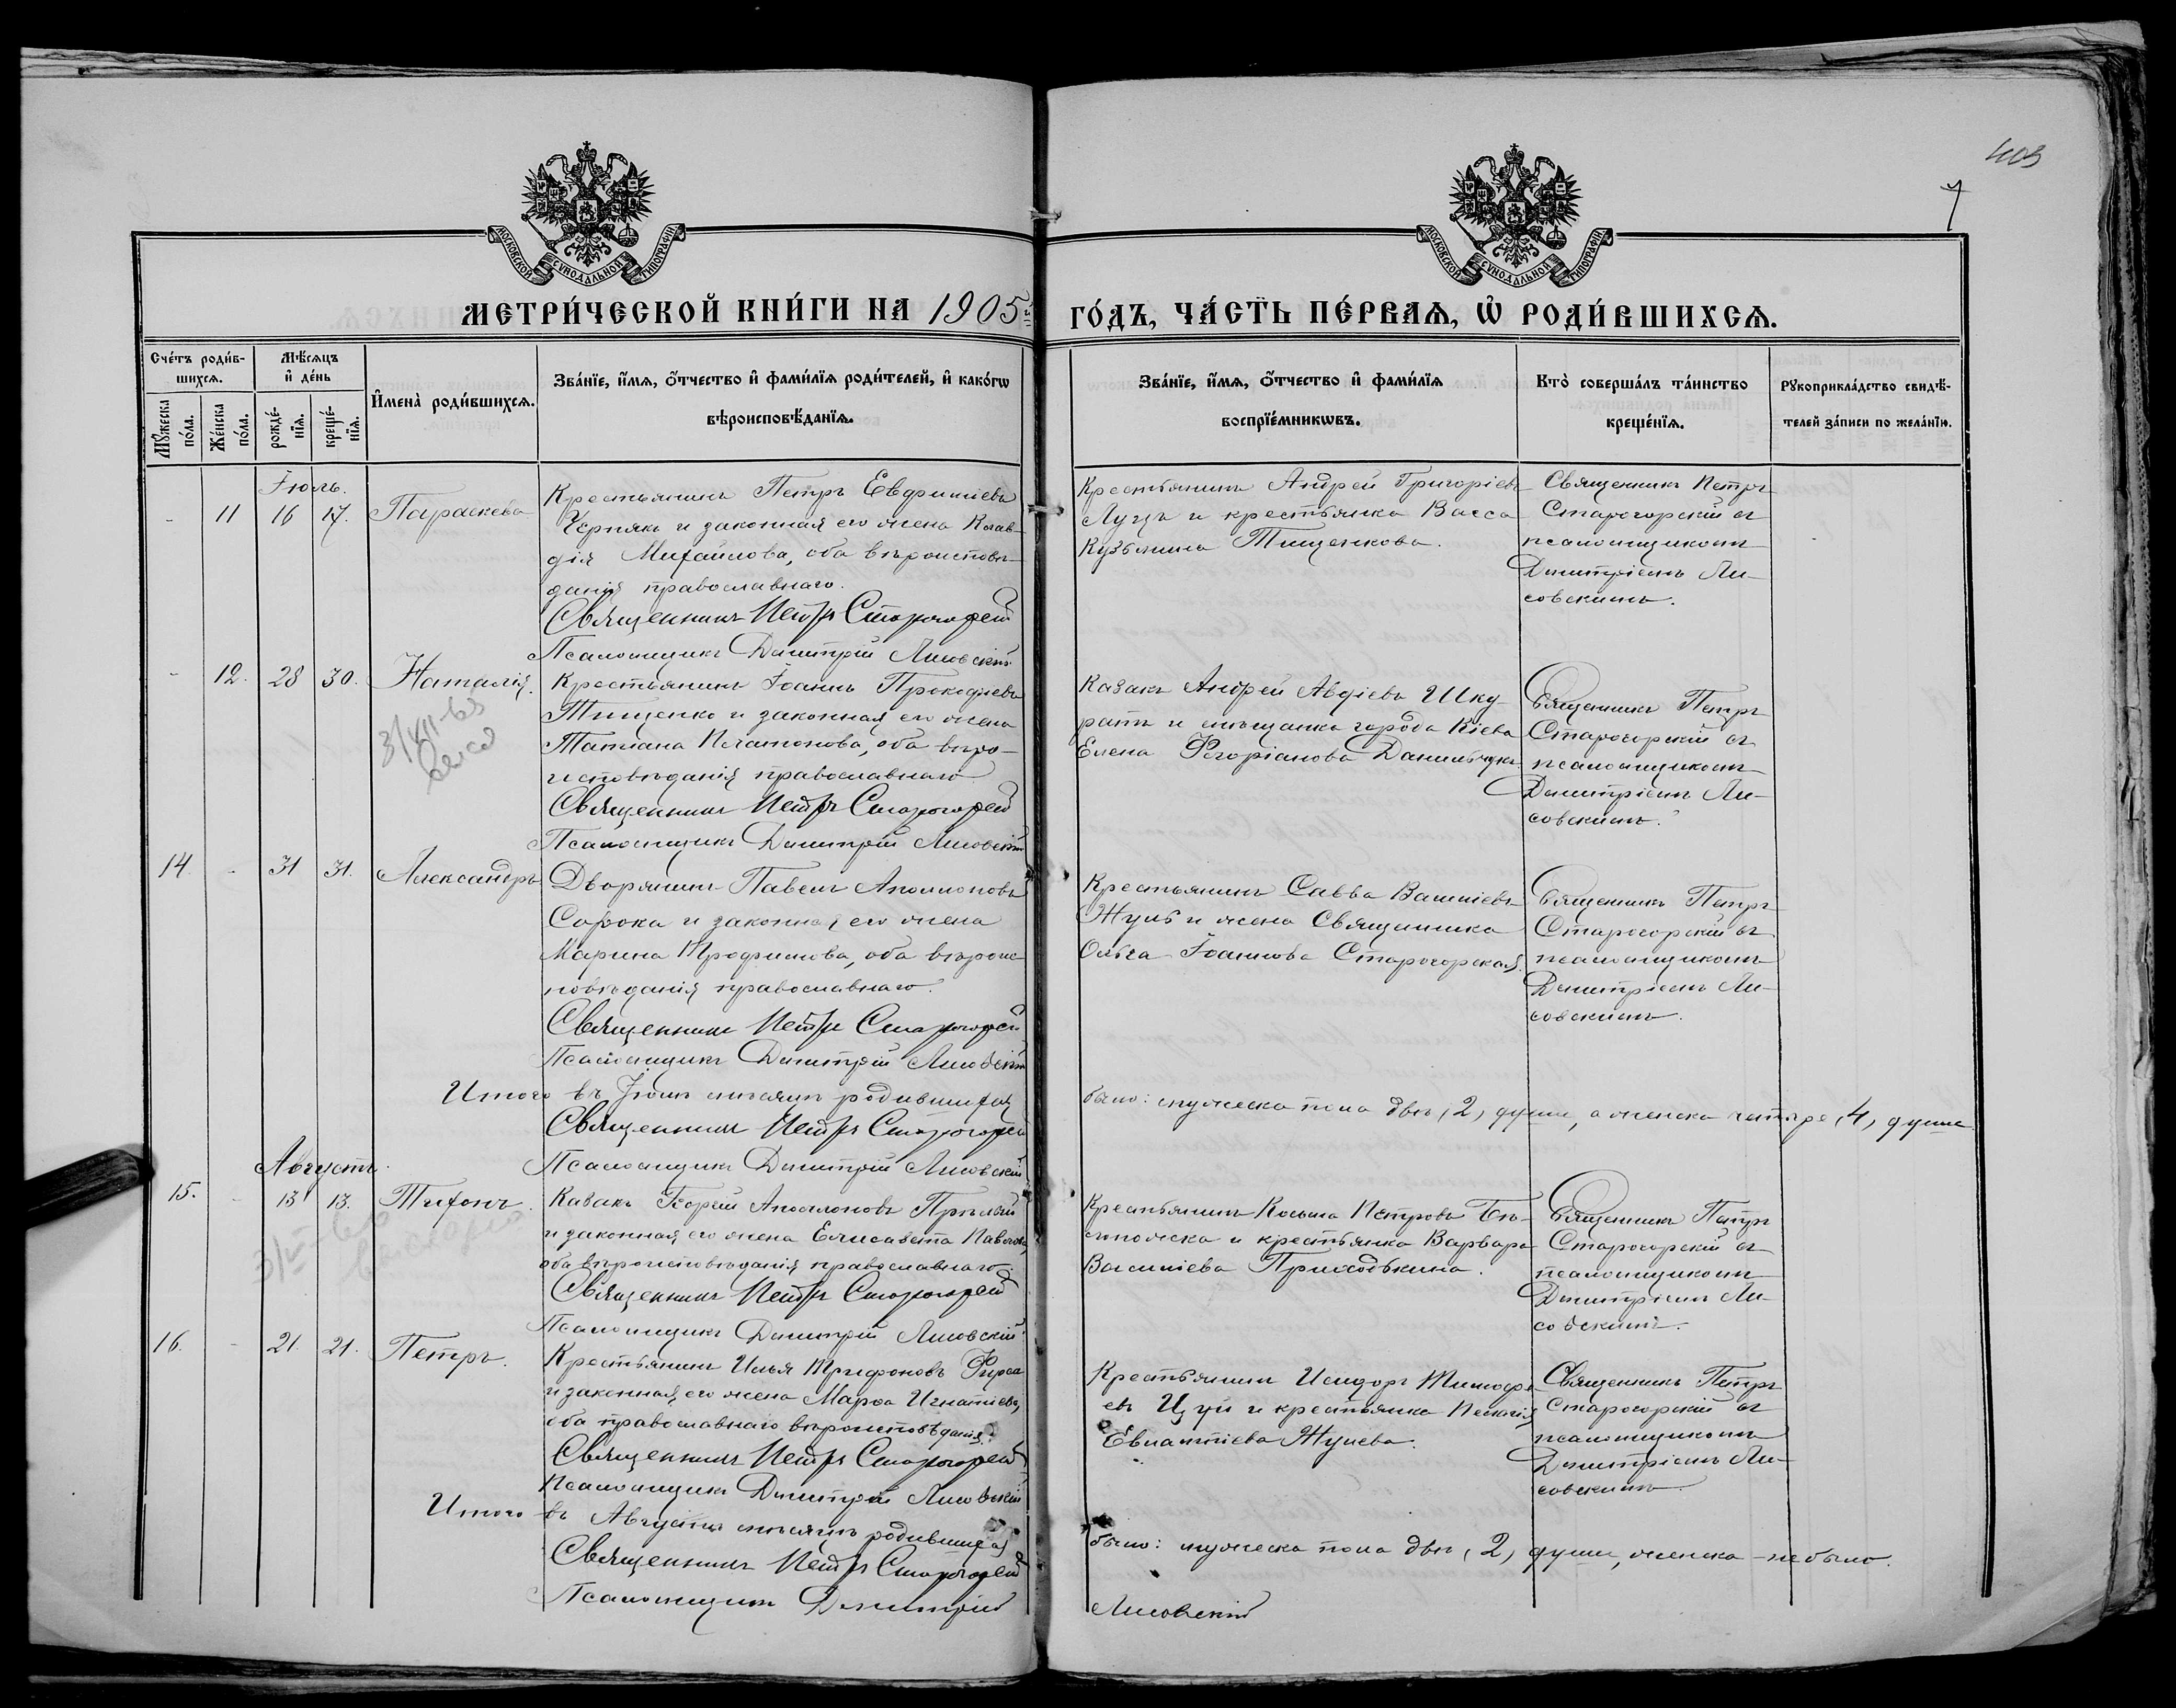 403
7
МОСКОВСКОЙ СѴНОДАЛЬНОЙ ТИПОГРАФІИ
МОСКОВСКОЙ СѴНОДАЛЬНОЙ ТИПОГРАФІИ
МЕТРИ́ЧЕСКОЙ КНИ́ГИ НА 1905
ГО́ДЪ, ЧА́СТЬ ПЕ́РВАѦ, Ѡ҆ РОДИ́ВШИХСѦ.
Сче́тъ роди́в-
шихсѧ.
Мꙋ́жеска
по́ла.
Же́нска
по́ла.
Мѣ́сѧцъ
и҆ де́нь
рожде́-
нїѧ.
креще́-
нїѧ.
И҆мена̀ роди́вшихсѧ.
Зва́нїе, и҆́мѧ, ѻ҆́тчество и҆ фами́лїѧ роди́телей, и҆ како́гѡ
вѣроисповѣ́данїѧ.
Зва́нїе, и҆́мѧ, ѻ҆́тчество и҆ фами́лїѧ
воспрїе́мникѡвъ.
Кто̀ соверша́лъ та́инство
креще́нїѧ.
Рꙋкоприкла́дство свидѣ́-
телей за́писи по жела́нїю.
Іюль.
- 11 16 17. Параскева
Крестьянинъ Петръ Евфиміевъ
Чернякъ и законная его жена Клав-
дія Михаилова, оба вѣроисповѣ-
данія православнаго.
Священникъ Петръ Старогорскій
Псаломщикъ Димитрій Лисовскій
Крестьянинъ Андрей Григоріевъ
Луцъ и крестьянка Васса
Кузьмина Тищенкова.
Священникъ Петръ
Старогорскій съ
псаломщикомъ
Димитріемъ Ли-
совскимъ.
- 12. 28 30. Наталія.
Крестьянинъ Іоаннъ Прокофіевъ
Тищенко и законная его жена
Татіана Платонова, оба вѣро-
исповѣданія православнаго
Священникъ Петръ Старогорскій
Псаломщикъ Димитрій Лисовскій
Казакъ Андрей Авдіевъ Шку-
ратъ и мѣщанка города Кіева
Елена Флоріанова Данильчукъ.
Священникъ Петръ
Старогорскій съ
псаломщикомъ
Димитріемъ Ли-
совскимъ.
14. - 31 31. Александръ
Дворянинъ Павелъ Аполлоновъ
Сорока и законная его жена
Марина Трофимова, оба вѣроис-
повѣданія православнаго.
Священникъ Петръ Старогорскій
Псаломщикъ Димитрій Лисовскій
Крестьянинъ Савва Василіевъ
Жуль и жена Священника
Ольга Іоаннова Старогорская.
Священникъ Петръ
Старогорскій съ
псаломщикомъ
Димитріемъ Ли-
совскимъ.
Итого въ Іюлѣ мѣсяцѣ родившихся
было: мужеска пола двѣ (2) души, а женска четыре (4) души.
Священникъ Петръ Старогорскій
Псаломщикъ Димитрій Лисовскій
Августъ.
15. - 13 13. Тихонъ.
Казакъ Георгій Аполлоновъ
и законная его жена Елисавета Павлова,
оба вѣроисповѣданія православнаго.
Священникъ Петръ Старогорскій
Псаломщикъ Димитрій Лисовскій
Крестьянинъ Косьма Петровъ
и крестьянка Варвара
Василіева Приходькина.
Священникъ Петръ
Старогорскій съ
псаломщикомъ
Димитріемъ Ли-
совскимъ.
16. - 21. 21. Петръ.
Крестьянинъ Илья Трифоновъ Фирса
и законная его жена Марѳа Игнатіева,
оба православнаго вѣроисповѣданія.
Священникъ Петръ Старогорскій
Псаломщикъ Димитрій Лисовскій
Крестьянинъ Исидоръ Тимофе-
евъ Цуй и крестьянка Пелагія
Евлампіева Жулева.
Священникъ Петръ
Старогорскій съ
псаломщикомъ
Димитріемъ Ли-
совскимъ.
Итого въ Августѣ мѣсяцѣ родившихся
было: мужеска пола двѣ (2) души, женска - не было.
Священникъ Петръ Старогорскій
Псаломщикъ Димитрій
Лисовскій